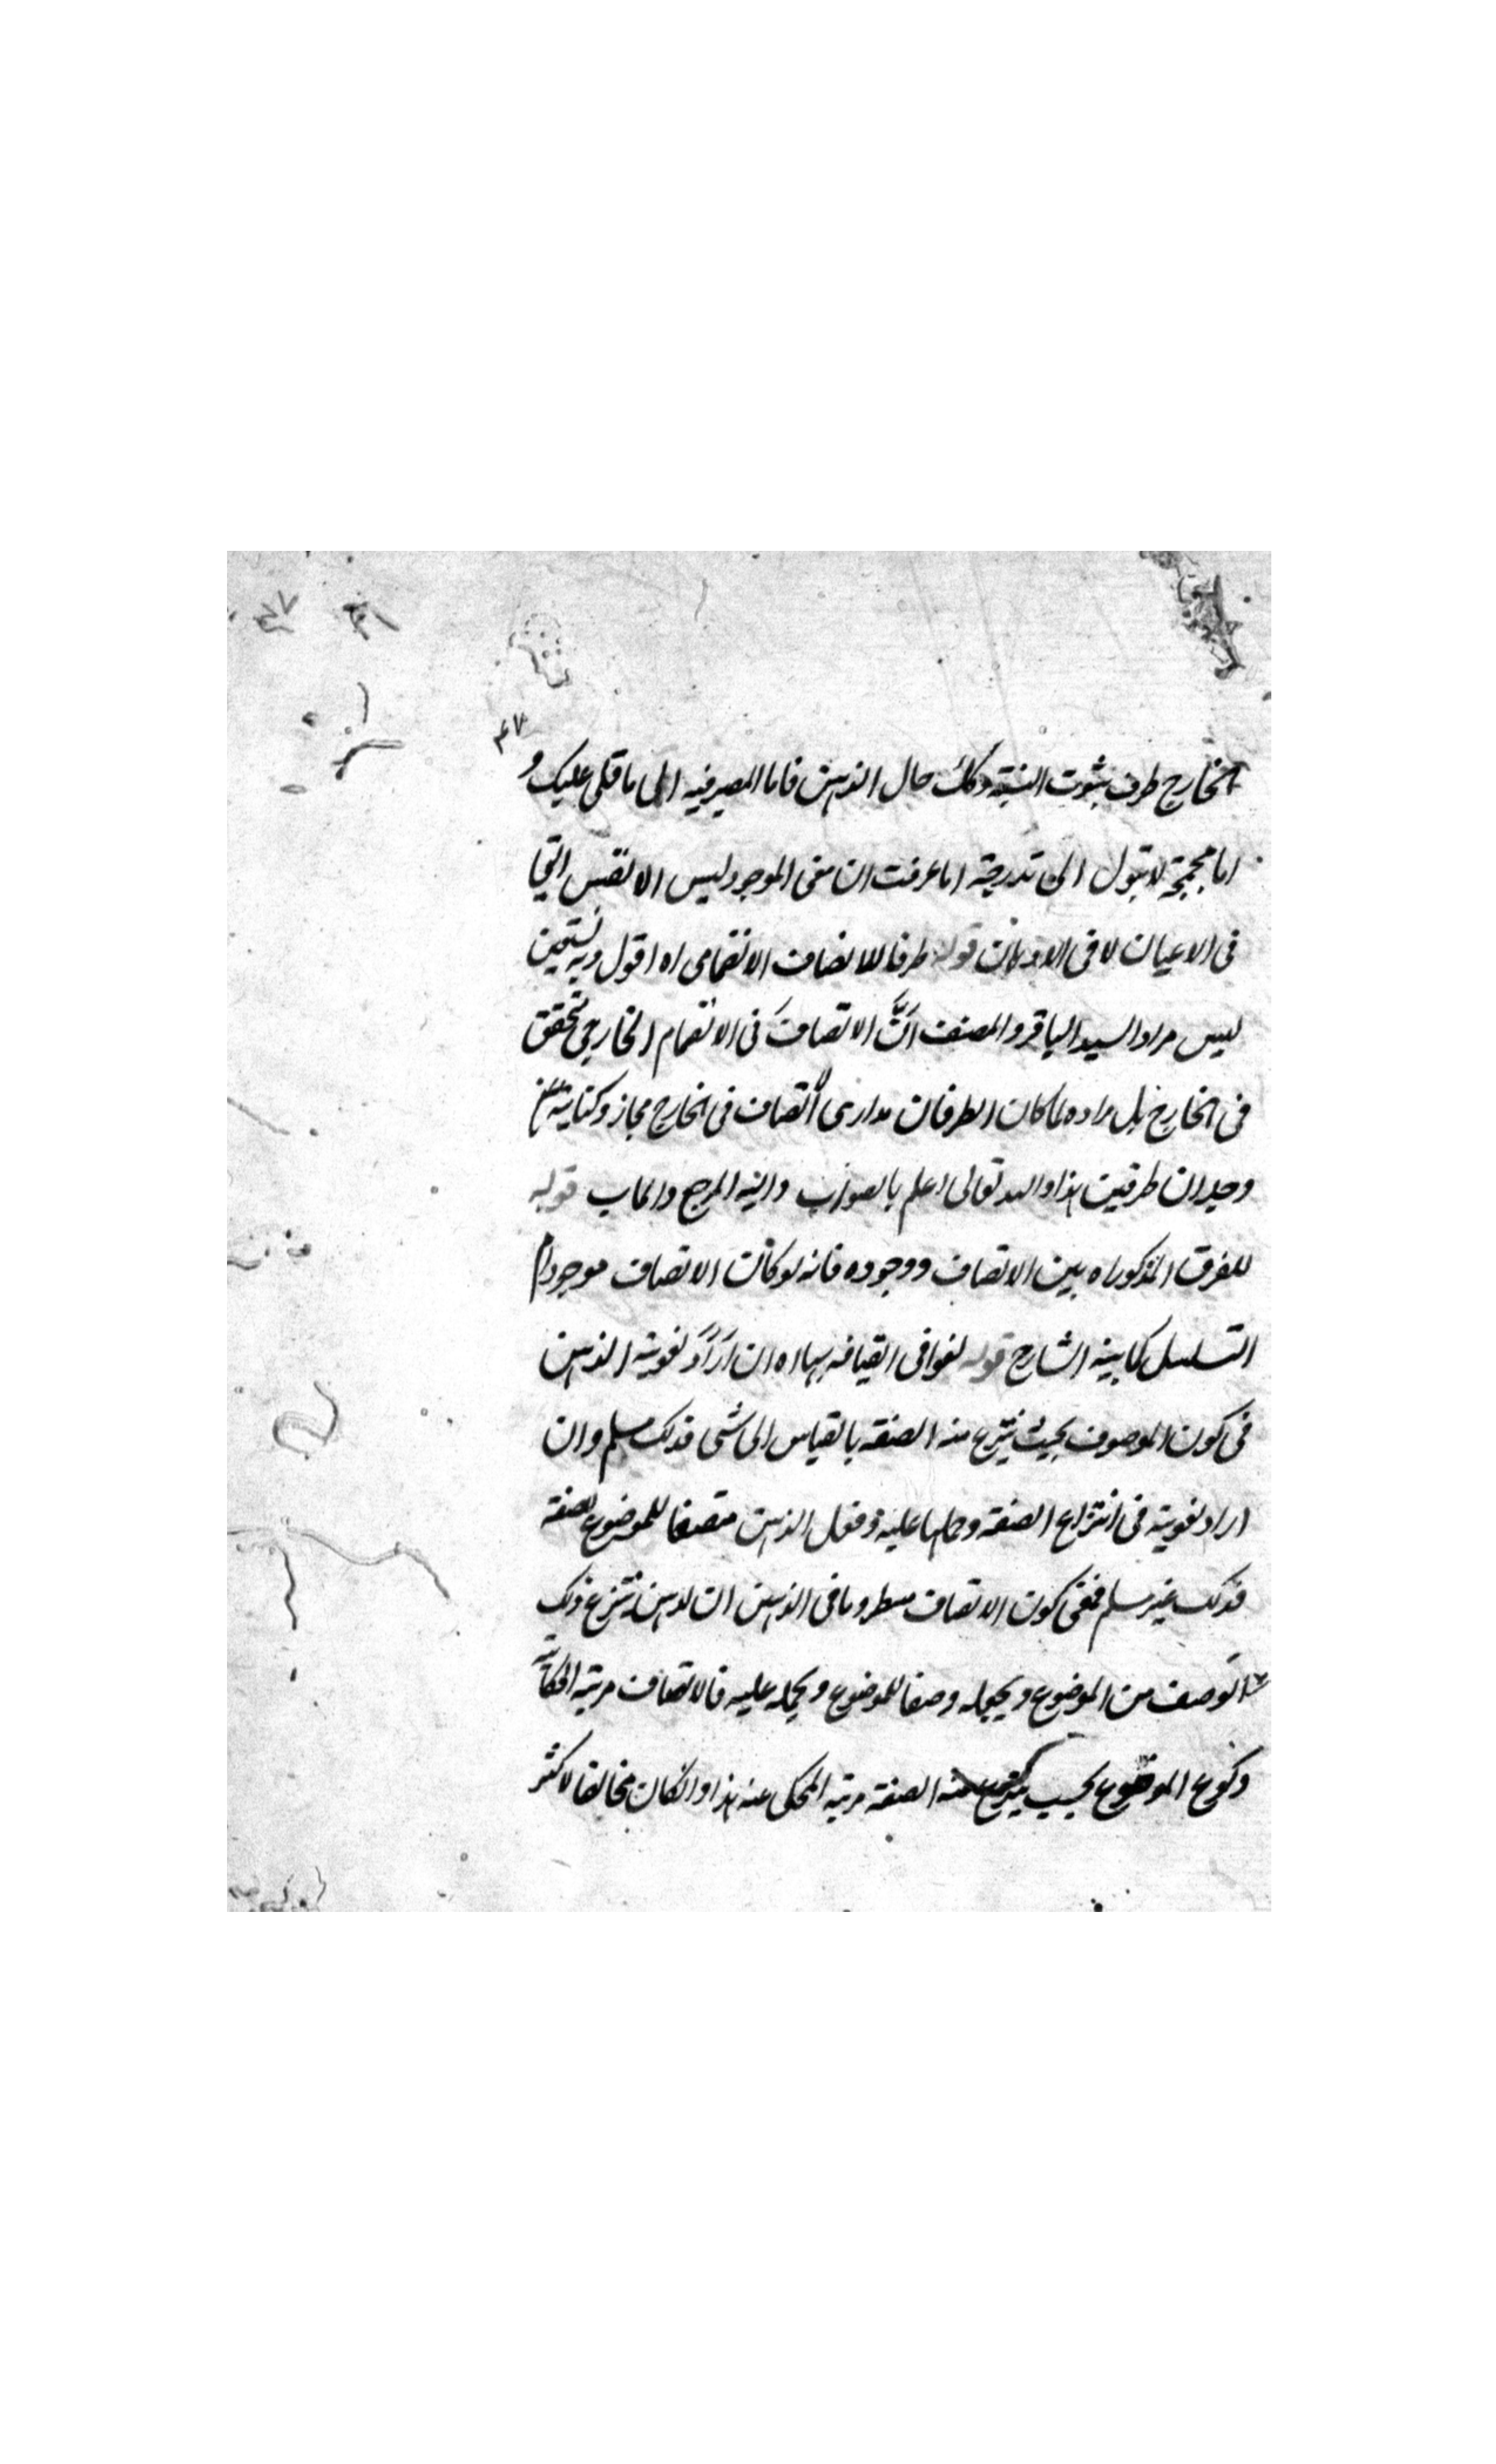 ٤٧
الخارج ظرف ثبوت النسبة وكذلك حال الذهن فاما المصير فيه الى ما قلى عليك و
اما عرفت ان معنى الموجود ليس الا نفس
فى الاعيان لا فى الاذهان قوله ظرفا للاتصاف الانضمامى اه اقول وبه نستعين
ليس مراد السيد الباقر والمصنف انَّ الاتصاف فى الانضمام الخارجى تحقق
فى الخارج بل مراده لما كان الطرفان اتصاف فى الخارج مجاز وكناية
وجدان طرفين هذا والله تعالى اعلم بالصواب واليه المرجع والماب قوله
للفرق المذكور اه بين الاتصاف ووجوده فانه لو كانت الاتصاف موجودا
التسلسل كما بينه الشارح قوله لغوا فى اه ان اراد لغوية الذهن
فى كون الموصوف بحيث ينتزع منه الصفة بالقياس الى شى فذلك مسلم وان
اراد لغويته فى انتزاع الصفة وحملها عليه الذهن متصفا للموضوع بصفة
فذلك غير مسلم فمعنى كون الاتصاف مظروفا فى الذهن ان الذهن ينتزع ذلك
الوصف من الموضوع ويجعله وصفا للموضوع ويحمله عليه فالاتصاف مرتبة الحكاية
وكون الموضوع بحيث ينتزع منه الصفة مرتبة المحكى عنه هذا وانكان مخالفا لاكثر